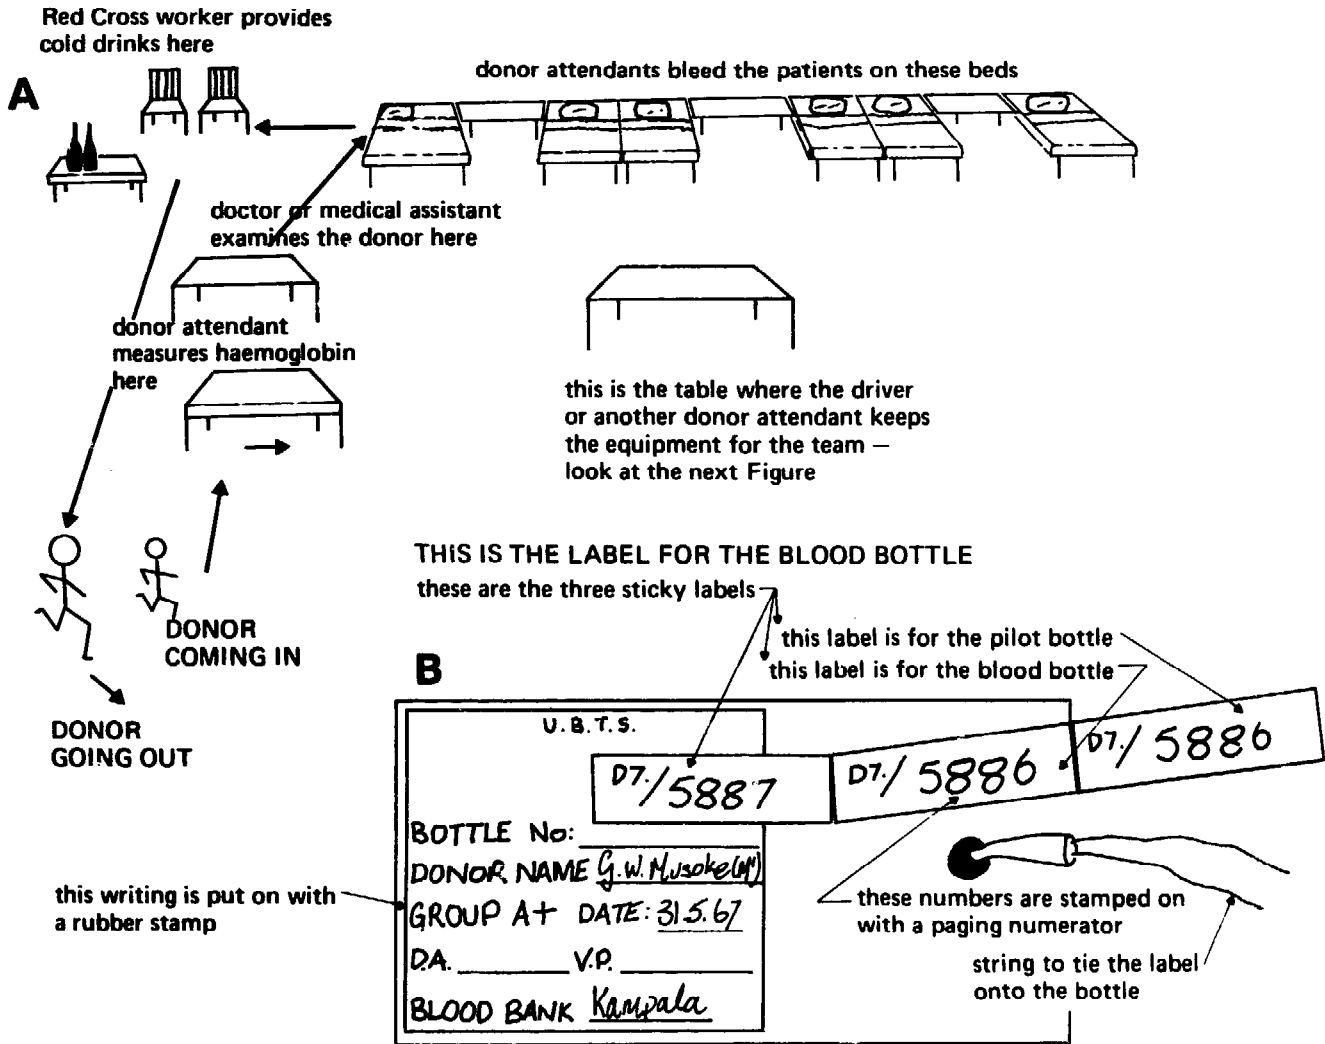 Red Cross worker provides
cold drinks here
A
donor attendants bleed the patients on these beds
doctor or medical assistant
examines the donor here
donor attendant
measures haemoglobin
here
this is the table where the driver
or another donor attendant keeps
the equipment for the team —
look at the next Figure
DONOR
COMING IN
DONOR
GOING OUT
THIS IS THE LABEL FOR THE BLOOD BOTTLE
these are the three sticky labels
this label is for the pilot bottle
this label is for the blood bottle
B
U.B.T.S.
D7./5887
D7./5886
D7./5886
BOTTLE No:
DONOR NAME G.W. Musoke (Mr)
GROUP A+ DATE: 31.5.67
D.A. V.P.
BLOOD BANK Kampala
this writing is put on with
a rubber stamp
these numbers are stamped on
with a paging numerator
string to tie the label
onto the bottle